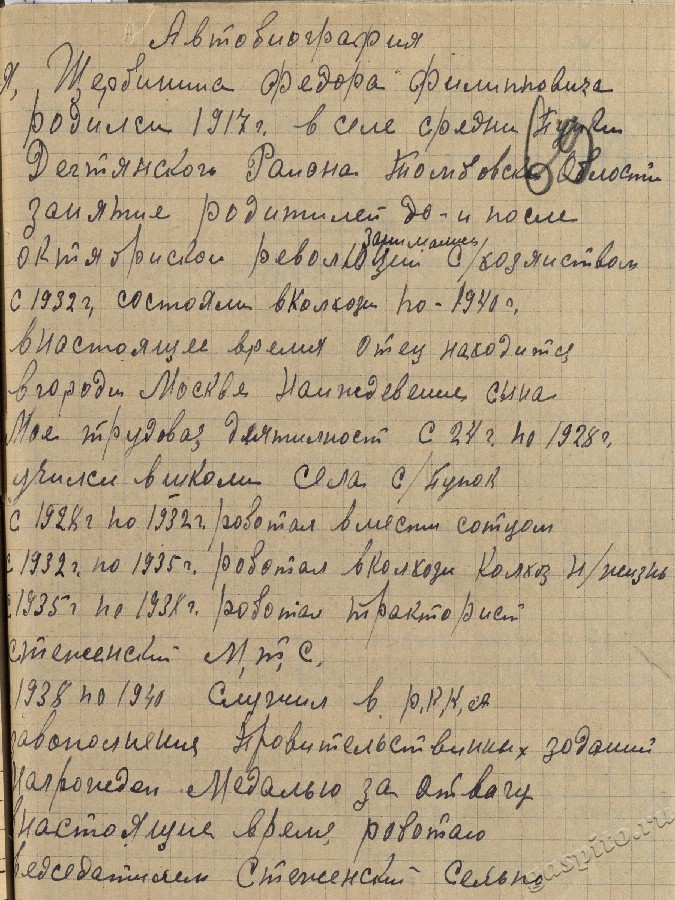 Автобиография
Я, Щербинина Федора Филипповича
родился 1917г. в селе средни Пупки
Дегтянского Раиона Томбовск Области
занятие родитилей до-и после
октябриской револющии занимались С/хозяиством
с 1932г, состояли вКолхози по-1940г,
внастоящее время отец находитца
вгороди Москве Наиждевение сына
Мое трудовая деятилност с 24г. по 1928г,
училси вшколи села С/Пупок
с 1928г по 1932г. роботал вмести сотцом
с 1932г. по 1935г. роботал вколхози Колхоз Н/жизнь
с 1935г по 1938г. роботал тракторист
стеженский М,т,С,
1938 по 1940 Служил в р,К,К,А
завополнения Провительственных зоданий
нагрожден Медалью за отвагу
внастоящие время роботаю
редседатилем Стеженский Сельпо
gaspito.ru